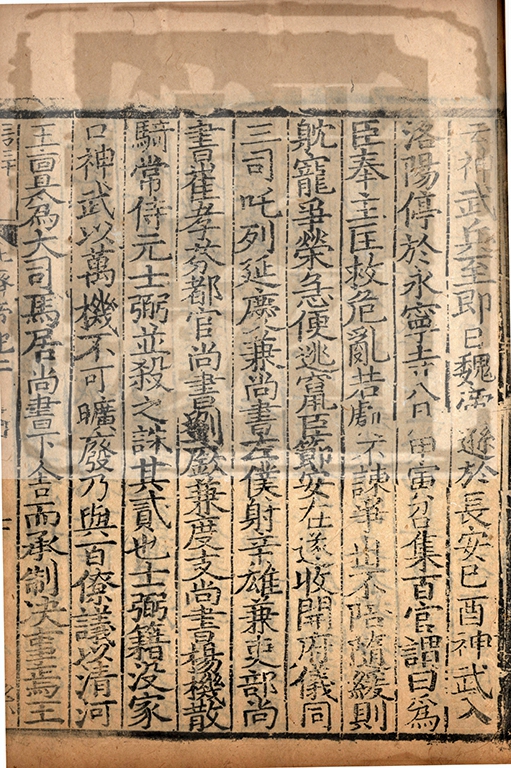 云神武兵至即日魏帝遜於長安己酉神武入
洛陽停於永寧寺八月甲寅召集百官謂曰為
臣奉主匡救危亂若處不諫爭出不陪隨緩則
躭寵爭榮急便逃竄臣節安在遂收開府儀同
三司叱列延慶兼尚書左僕射辛雄兼吏部尚
書崔孝芬都官尚書劉廞兼度支尚書楊機散
騎常侍元士弼並殺之誅其貳也士弼籍没家
口神武以萬機不可曠廢乃與百僚議以清河
王亶為大司馬居尚書下舍而承制决事焉王